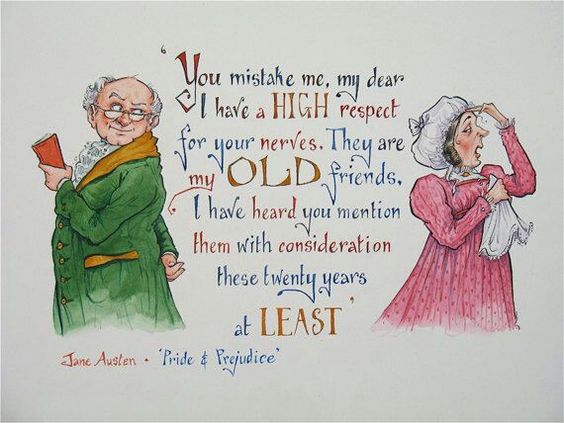 ‘You mistake me, my dear
I have a HIGH respect
for your nerves. They are
my OLD friends.
I have heard you mention
them with consideration
these twenty years
at LEAST’
Jane Austen • ‘Pride & Prejudice’